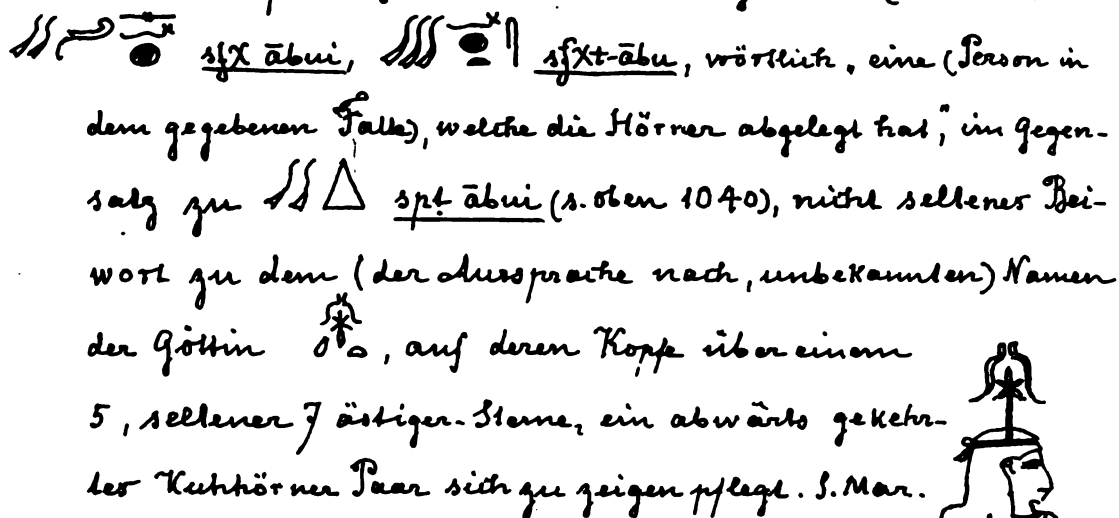 sfχ ābui, sfχt-ābu, wörtlich „eine (Person in
dem gegebenen Falle), welche die Hörner abgelegt hat", im Gegen-
satz zu spṭ ābui (s. oben 1040), nicht seltenes Bei-
wort zu dem (der Aussprache nach, unbekannten) Namen
der Göttin , auf deren Kopfe über einem
5, seltener 7 ästigen Sterne, ein abwärts gekehr-
tes Kuhhörner Paar sich zu zeigen pflegt. S. Mar.